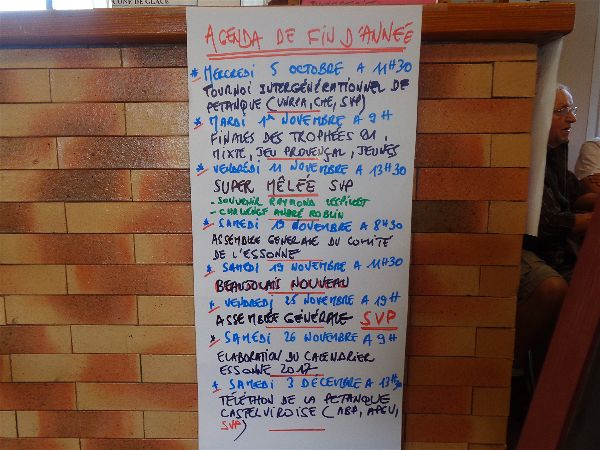 CONE DE GLACE
AGENDA DE FIN D'ANNÉE
* MERCREDI 5 OCTOBRE A 11H30
TOURNOI INTERGÉNÉRATIONNEL DE
PETANQUE (UNRPA, CME, SVP)
* MARDI 1er NOVEMBRE A 9H
FINALES DES TROPHÉES 91,
MIXTE, JEU PROVENÇAL, JEUNES
* VENDREDI 11 NOVEMBRE A 13H30
SUPER MÊLÉE SVP
- SOUVENIR RAYMOND
- CHALLENGE ANDRÉ ROBLIN
* SAMEDI NOVEMBRE A 8H30
ASSEMBLEE GENERALE DU COMITE
DE L'ESSONNE
* SAMEDI 19 NOVEMBRE A 11H30
BEAUJOLAIS NOUVEAU
* VENDREDI 25 NOVEMBRE A 19H
ASSEMBLÉE GÉNÉRALE SVP
* SAMEDI 26 NOVEMBRE A 9H
ELABORATION DU CALENDRIER
ESSONNE 2017
* SAMEDI 3 DÉCEMBRE A 13H30
TÉLÉTHON DE LA PETANQUE
CASTELVIROISE (ABP, APEV,
SVP)